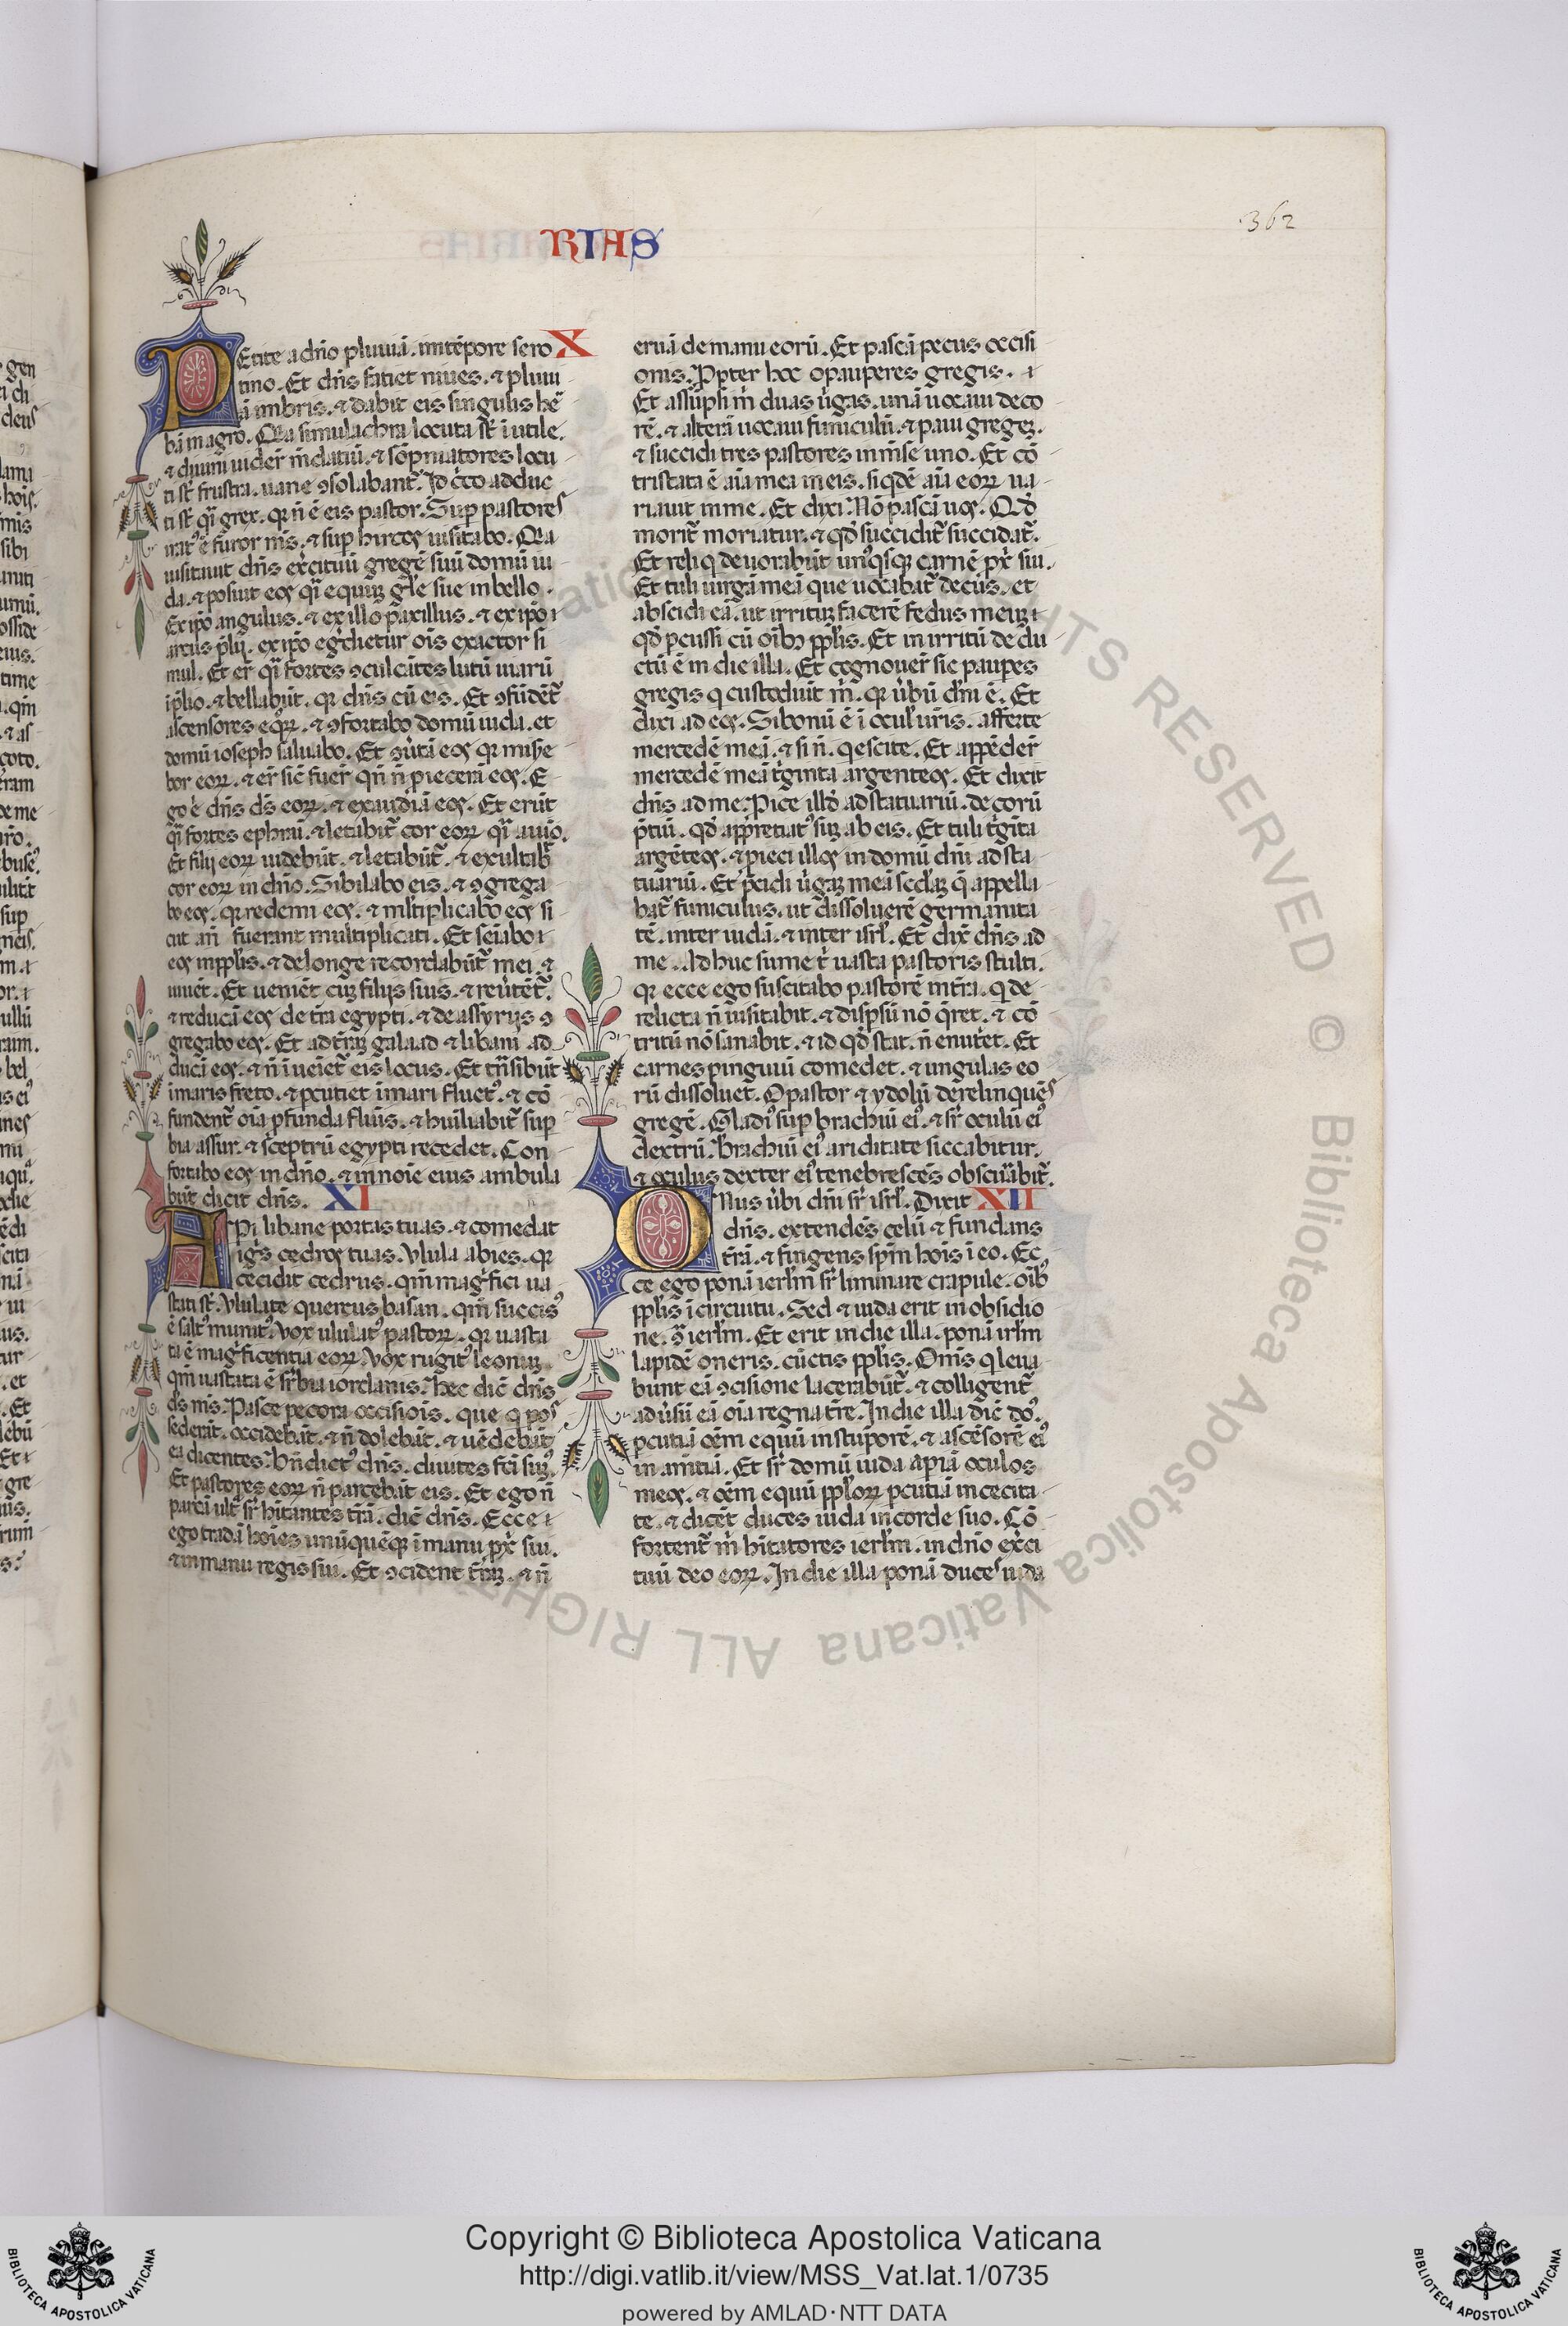 RIAS
362
X
Petite a dn̄o pluuiā. in tēpore sero
tino. Et dn̄s faciet niues. ⁊ pluui
ā imbris. ⁊ dabit eis singulis hē
bā in agro. Q̄a simulachra locuta st̄ īutile.
⁊ diuini uiderr̄ mēdatiū. ⁊ sōpniatores locu
ti st̄ frustra. uane ꝯsolabant̄. Id c̄co adduc
ti st̄ q̄i grex. qr n̄ ē eis pastor. Sup pastores
irat᷒ ē furor ms̄. ⁊ sup hircos uisitabo. Q̄a
uisitauit dn̄s ex̄citū gregē suū domū iu
da. ⁊ posuit eos q̄i equū gl̄e sue in bello.
Ex ip̄o angulus. ⁊ ex illo paxillus. ⁊ ex ip̄o
arcus p̄lij. ex ip̄o egr̄dietur ois exactor si
mul. Et er̄ q̄i fortes ꝯculcātes lutū uiarū
ī p̄lio. ⁊ bellabūt. qr dn̄s cū eis. Et ꝯfūdēt̄
ascensores eqꝝ. ⁊ ꝯfortabo domū iuda. et
domū ioseph saluabo. Et ꝯūtā eos qr mise
bor eoꝝ. ⁊ er̄ sic̄ fuer̄ qn̄ n̄ p̄ieceram eos. E
go ē dn̄s ds̄ eoꝝ. ⁊ exaudiā eos. Et erūt
q̄i fortes ephraī. ⁊ letabit̄ cor eoꝝ q̄i a uīo.
Et filij eoꝝ uidebūt. ⁊ letabūt̄. ⁊ exultab̄
cor eoꝝ in dn̄o. Sibilabo eis. ⁊ ꝯgrega
bo eos. qr redemi eos. ⁊ ml̄tiplicabo eos si
cut an̄ fuerant multiplicati. Et seīabo
eos in pp̄lis. ⁊ de longe recordabūt̄ mei. ⁊
uiuēt. Et ueniēt cuꝫ filijs suis. ⁊ reūtēt̄.
⁊ reducā eos de tr̄a egypti. ⁊ de assyrijs ꝯ
gregabo eos. Et ad tr̄aꝫ galaad ⁊ libani ad
ducā eos. ⁊ n̄ īueiet̄ eis locus. Et trn̄sibūt
ī maris freto. ⁊ ꝑcutiet ī mari fluct᷒. ⁊ cō
fundent̄ oīa ꝓfunda flūis. ⁊ huīliabit̄ sup
bia assur. ⁊ sceptrū egypti recedet. Con
fortabo eos in dn̄o. ⁊ in noīe eius ambula
būt dicit dn̄s. XI
Api libane portas tuas. ⁊ comedat
igīs cedros tuas. Vlula abies. qr
cecidit cedrus. qm̄ mag̅fici ua
stati st̄. Vlulate quercus basan. qm̄ succis᷒
ē salt᷒ munit᷒. Vox ululat᷒ pastorꝝ. qr uasta
ta ē mag̅ficentia eorꝝ. Vox rugit᷒ leonuꝫ.
qm̄ uastata ē sr̄bia iordanis. Hec dic̄ dn̄s
ds̄ ms̄. Pasce pecora occisiois. que q pos
sederāt. occidebāt. ⁊ n̄ dolebāt. ⁊ uēdebāt
ea dicentes. Bn̄dict᷒ dn̄s. diuites fc̄i sum᷒.
Et pastores eorꝝ n̄ parcebāt eis. Et ego n̄
parcā ult̄ sr̄ hītantes tr̄ā. dic̄ dn̄s. Ecce
ego tradā hoīes unūquēqꝫ ī manu pr̄x̄ sui.
⁊ in manu regis sui. Et ꝯcident tr̄aꝫ. ⁊ n̄
eruā de manu eorū. Et pascā pecus occisi
onis. Ppter hoc o pauperes gregis.
Et assūpsi m̄ duas ūgas. unā uocaui deco
rē. ⁊ alterā uocaui funiculū. ⁊ paui gregeꝫ.
⁊ succidi tres pastores in mēse uno. Et cō
tristata ē aīa mea in eis. siqdē aīa eorꝝ ua
riauit in me. Et dixi. Nō pascā uos. Qd̄
morit̄ moriatur. ⁊ qd̄ succidit̄ succidat̄.
Et reliq deuorabūt un᷒qsqꝫ carnē pr̄x̄ sui.
Et tuli uirgā meā que uocabat̄ decus. et
abscidi eā. ut irrituꝫ facerē fedus meuꝫ
qd̄ ꝑcussi cū oībꝫ pp̄lis. Et in irritū de du
ctū ē in die illa. Et cognouer̄ sic paupes
gregis q custodiūt m̄. qr ūbū dn̄i ē. Et
dixi ad eos. Si bonū ē ī oculis ur̄is. afferte
mercedē meā. ⁊ si n̄. qescite. Et appēder̄
mercedē meā t̄ginta argenteos. Et dixit
dn̄s ad me. Pice illd̄ ad statuariū. decorū
p̄tiū. qd̄ appretiat᷒ suꝫ ab eis. Et tuli t̄gīta
argēteos. ⁊ p̄ieci illos in domū dn̄i ad sta
tuariū. Et p̄cidi ūgaꝫ meā sc̄daꝫ q̄ appella
bat̄ funiculus. ut dissoluerē germanita
tē. inter iudā. ⁊ inter isrl̄. Et dix̄ dn̄s ad
me. Adhuc sume t̄ uasa pastoris stulti.
qr ecce ego suscitabo pastorē in tr̄a. q de
relicta n̄ uisitabit. ⁊ dispsū nō q̄ret. ⁊ cō
tritū nō sanabit. ⁊ id qd̄ stat. n̄ enut̄et. Et
carnes pinguiū comedet. ⁊ ungulas eo
rū dissoluet. O pastor ⁊ ydolū derelinquēs
gregē. Gladi᷒ sup brachiū ei᷒. ⁊ sr̄ oculū ei᷒
dextrū. Brachiū ei᷒ ariditate siccabitur.
⁊ oculus dexter ei᷒ tenebrescēs obscurabit̄.
Onus ūbi dn̄i sr̄ isrl̄. Dixit XII
dn̄s. extendēs celū ⁊ fundans
tr̄ā. ⁊ fingens spm̄ hois ī eo. Ec
ce ego ponā ierl̄m sr̄ liminare crapule. oīb᷒
pp̄lis ī circuitu. Sed ⁊ iuda erit in obsidio
ne. ꝯ̄ ierl̄m. Et erit in die illa. ponā irl̄m
lapidē oneris. cūctis pp̄lis. Om̄s q leua
bunt eā ꝯcisione lacerabūt̄. ⁊ colligent̄
aduSū eā oīa regna tr̄e. In die illa dic̄ do᷒.
ꝑcutiā oēm equū in stuporē. ⁊ ascēsorē ei᷒
in amtiā. Et sr̄ domū iuda apiā oculos
meos. ⁊ oēm equū pp̄lorꝝ ꝑcutiā in cecita
te. ⁊ dicēt duces iuda in corde suo. Cō
fortent̄ m̄ hītatores ierl̄m. in dn̄o ex̄ci
tuū deo eorꝝ. In die illa ponā duces iuda
Copyright © Biblioteca Apostolica Vaticana
http://digi.vatlib.it/view/MSS_Vat.lat.1/0735
powered by AMLAD·NTT DATA